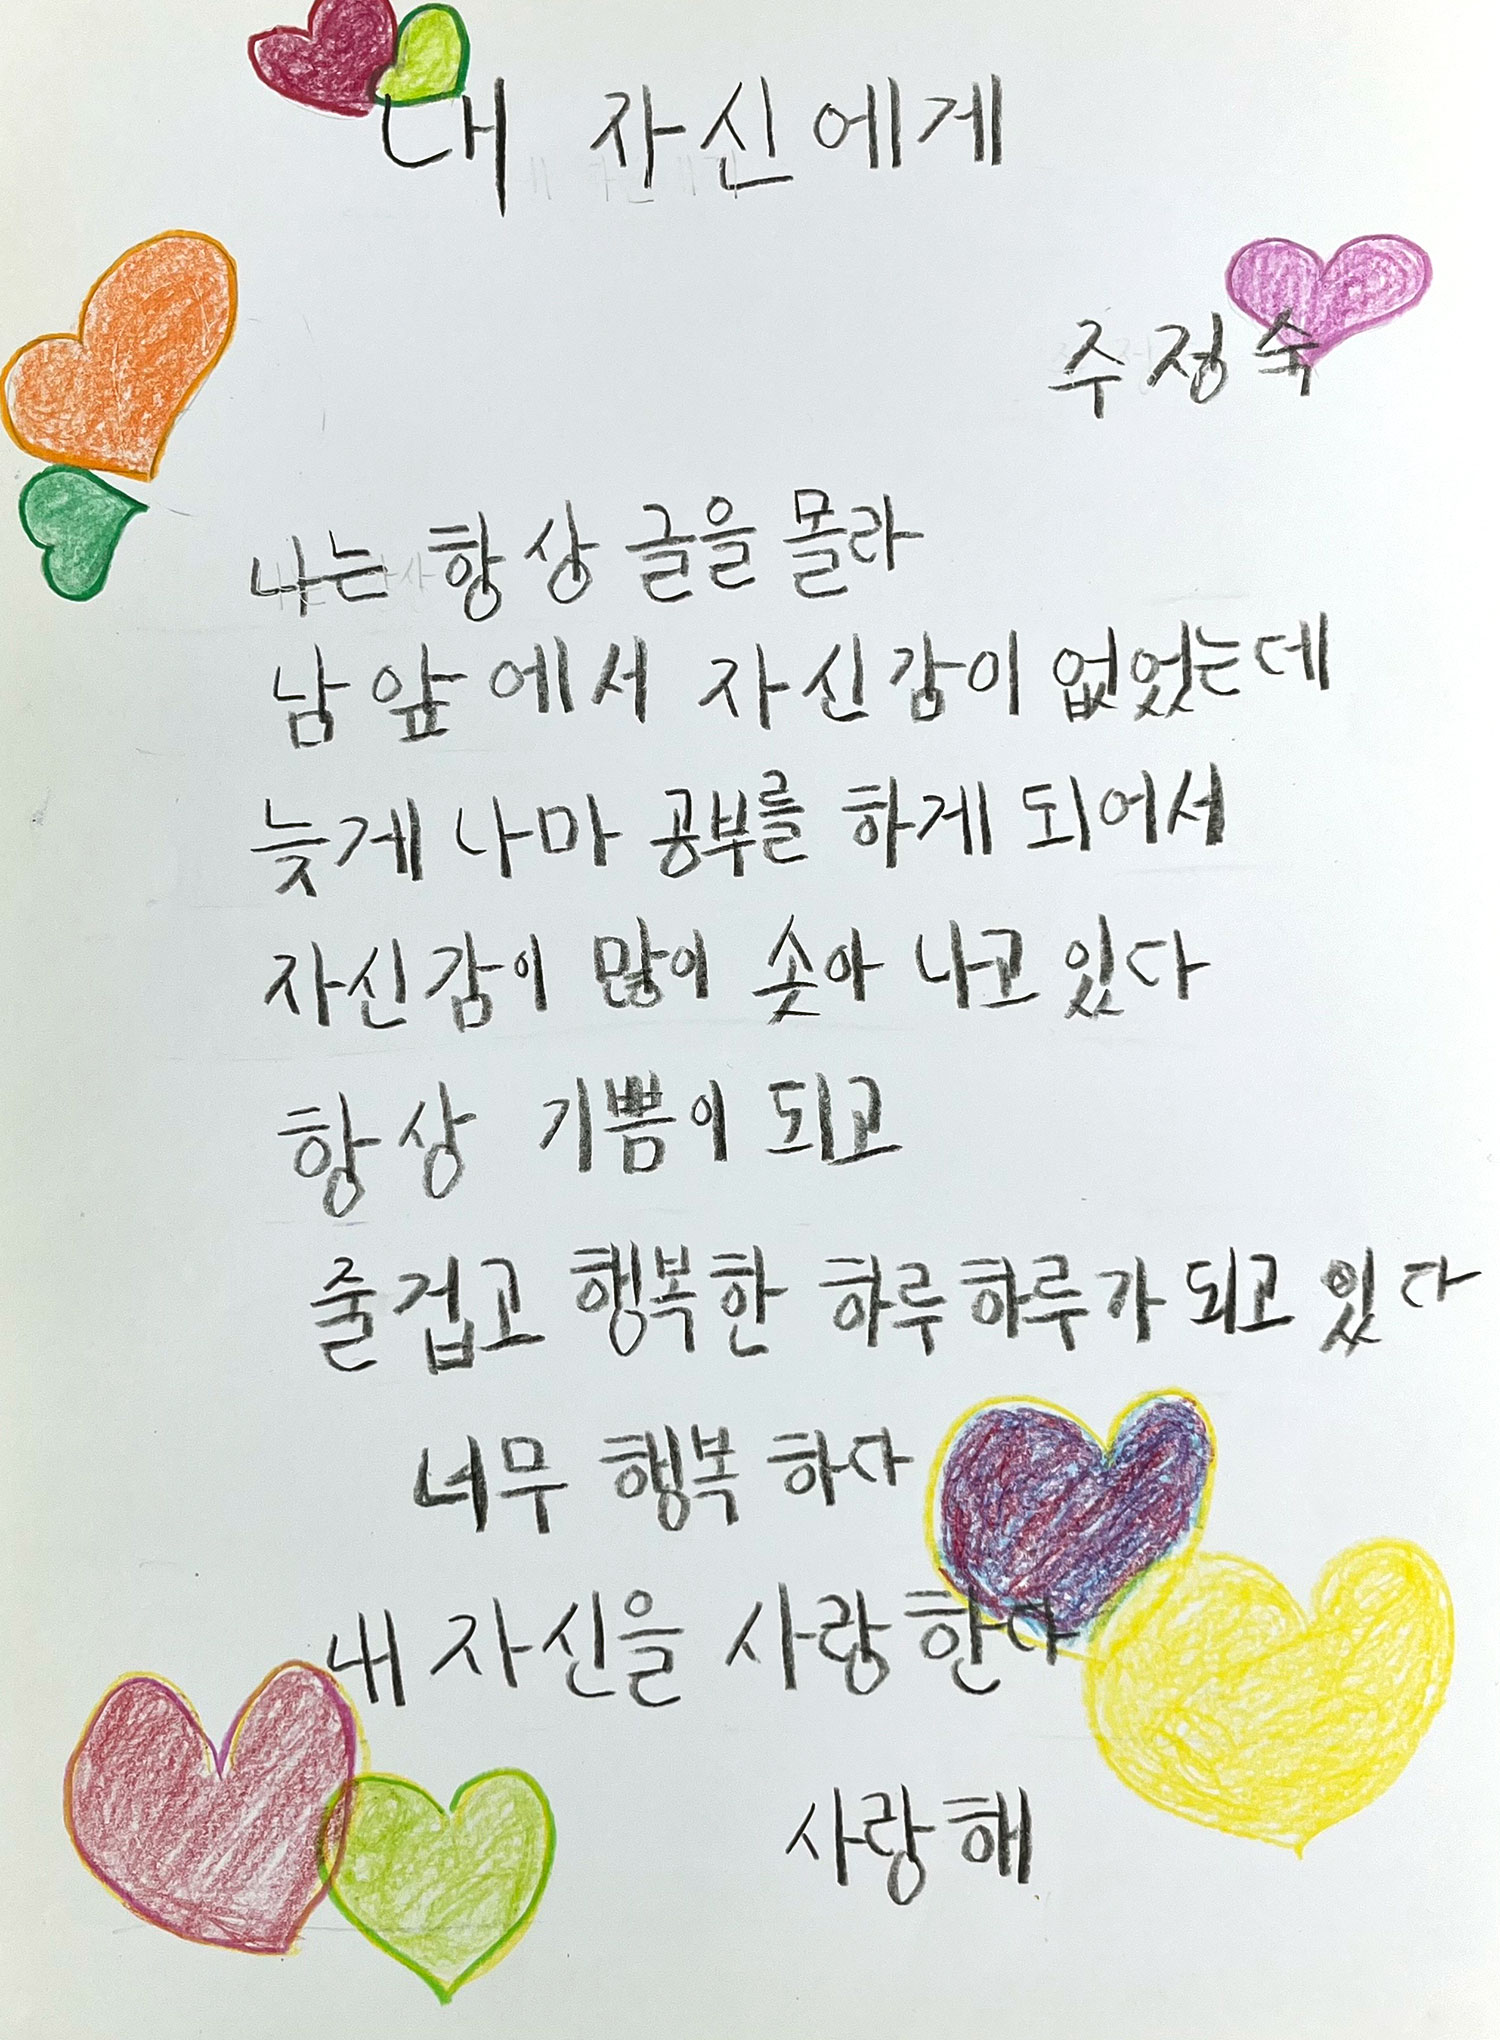 내 자신에게
주정숙
나는 항상 글을 몰라
남 앞에서 자신감이 없었는데
늦게 나마 공부를 하게 되어서
자신감이 많이 솟아 나고 있다
항상 기쁨이 되고
줄겁고 행복한 하루하루가 되고 있다
너무 행복 하다
내 자신을 사랑한다
사랑해